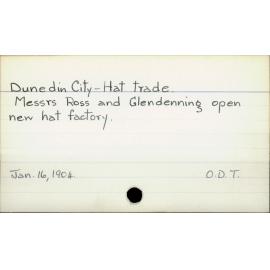 Dunedin City - Hat trade.
Messrs Ross and Glendenning open
new hat factory.
Jan. 16, 1904. O.D.T.